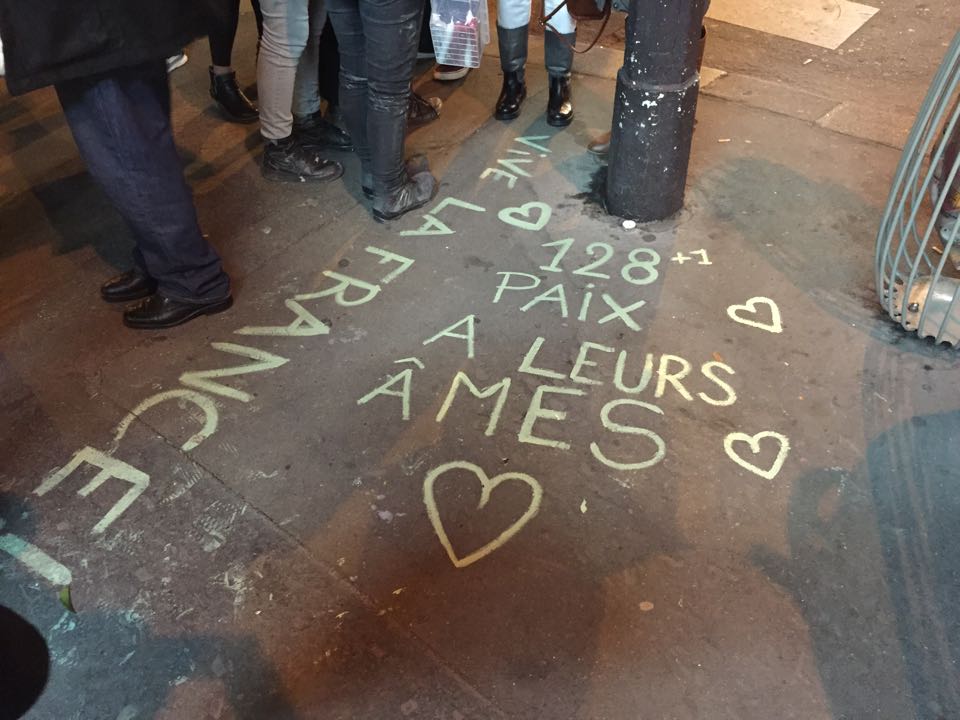 VIVE LA FRANCE!
128 +1
PAIX
A LEURS
ÂMES